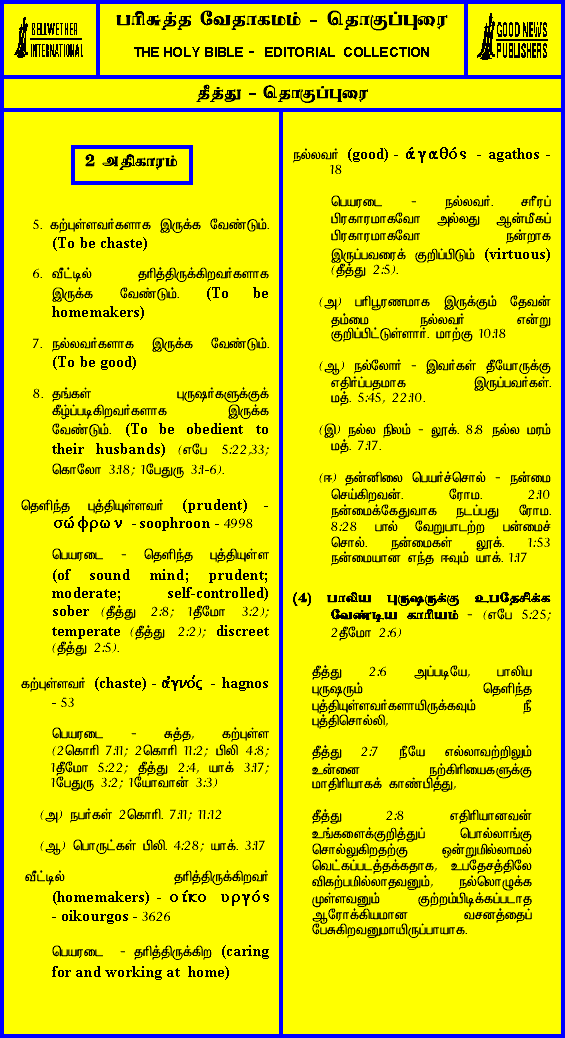 BELLWETHER
INTERNATIONAL
பரிசுத்த வேதாகமம் - தொகுப்புரை
THE HOLY BIBLE - EDITORIAL COLLECTION
GOOD NEWS
PUBLISHERS
தீத்து - தொகுப்புரை
2 அதிகாரம்
5. கற்புள்ளவர்களாக இருக்க வேண்டும்.
(To be chaste)
6. வீட்டில் தரித்திருக்கிறவர்களாக
இருக்க வேண்டும். (To be
homemakers)
7. நல்லவர்களாக இருக்க வேண்டும்.
(To be good)
8. தங்கள் புருஷர்களுக்குக்
கீழ்ப்படிகிறவர்களாக இருக்க
வேண்டும். (To be obedient to
their husbands) (எபே 5:22,33;
கொலோ 3:18; 1பேதுரு 3:1-6).
தெளிந்த புத்தியுள்ளவர் (prudent) -
σώφρων - soophroon - 4998
பெயரடை - தெளிந்த புத்தியுள்ள
(of sound mind; prudent;
moderate; self-controlled)
sober (தீத்து 2:8; 1தீமோ 3:2);
temperate (தீத்து 2:2); discreet
(தீத்து 2:5).
கற்புள்ளவர் (chaste) - ἁγνός - hagnos
- 53
பெயரடை - சுத்த, கற்புள்ள
(2கொரி 7:11; 2கொரி 11:2; பிலி 4:8;
1தீமோ 5:22; தீத்து 2:4, யாக் 3:17;
1பேதுரு 3:2; 1யோவான் 3:3)
(அ) நபர்கள் 2கொரி. 7:11; 11:12
(ஆ) பொருட்கள் பிலி. 4:28; யாக். 3:17
வீட்டில் தரித்திருக்கிறவர்
(homemakers) - οίκο υργός
- oikourgos - 3626
பெயரடை - தரித்திருக்கிற (caring
for and working at home)
நல்லவர் (good) - άγαθός - agathos -
18
பெயரடை - நல்லவர். சரீரப்
பிரகாரமாகவோ அல்லது ஆன்மீகப்
பிரகாரமாகவோ நன்றாக
இருப்பவரைக் குறிப்பிடும் (virtuous)
(தீத்து 2:5).
(அ) பரிபூரணமாக இருக்கும் தேவன்
தம்மை நல்லவர் என்று
குறிப்பிட்டுள்ளார். மாற்கு 10:18
(ஆ) நல்லோர் - இவர்கள் தீயோருக்கு
எதிர்ப்பதமாக இருப்பவர்கள்.
மத். 5:45, 22:10.
(இ) நல்ல நிலம் - லூக். 8:8 நல்ல மரம்
மத். 7:17.
(ஈ) தன்னிலை பெயர்ச்சொல் - நன்மை
செய்கிறவன். ரோம. 2:10
நன்மைக்கேதுவாக நடப்பது ரோம.
8:28 பால் வேறுபாடற்ற பன்மைச்
சொல். நன்மைகள் லூக். 1:53
நன்மையான எந்த ஈவும் யாக். 1:17
(4) பாலிய புருஷருக்கு உபதேசிக்க
வேண்டிய காரியம் - (எபே 5:25;
2தீமோ 2:6)
தீத்து 2:6 அப்படியே, பாலிய
புருஷரும் தெளிந்த
புத்தியுள்ளவர்களாயிருக்கவும் நீ
புத்திசொல்லி,
தீத்து 2:7 நீயே எல்லாவற்றிலும்
உன்னை நற்கிரியைகளுக்கு
மாதிரியாகக் காண்பித்து,
தீத்து 2:8 எதிரியானவன்
உங்களைக்குறித்துப் பொல்லாங்கு
சொல்லுகிறதற்கு ஒன்றுமில்லாமல்
வெட்கப்படத்தக்கதாக, உபதேசத்திலே
விகற்பமில்லாதவனும், நல்லொழுக்க
முள்ளவனும் குற்றம்பிடிக்கப்படாத
ஆரோக்கியமான வசனத்தைப்
பேசுகிறவனுமாயிருப்பாயாக.